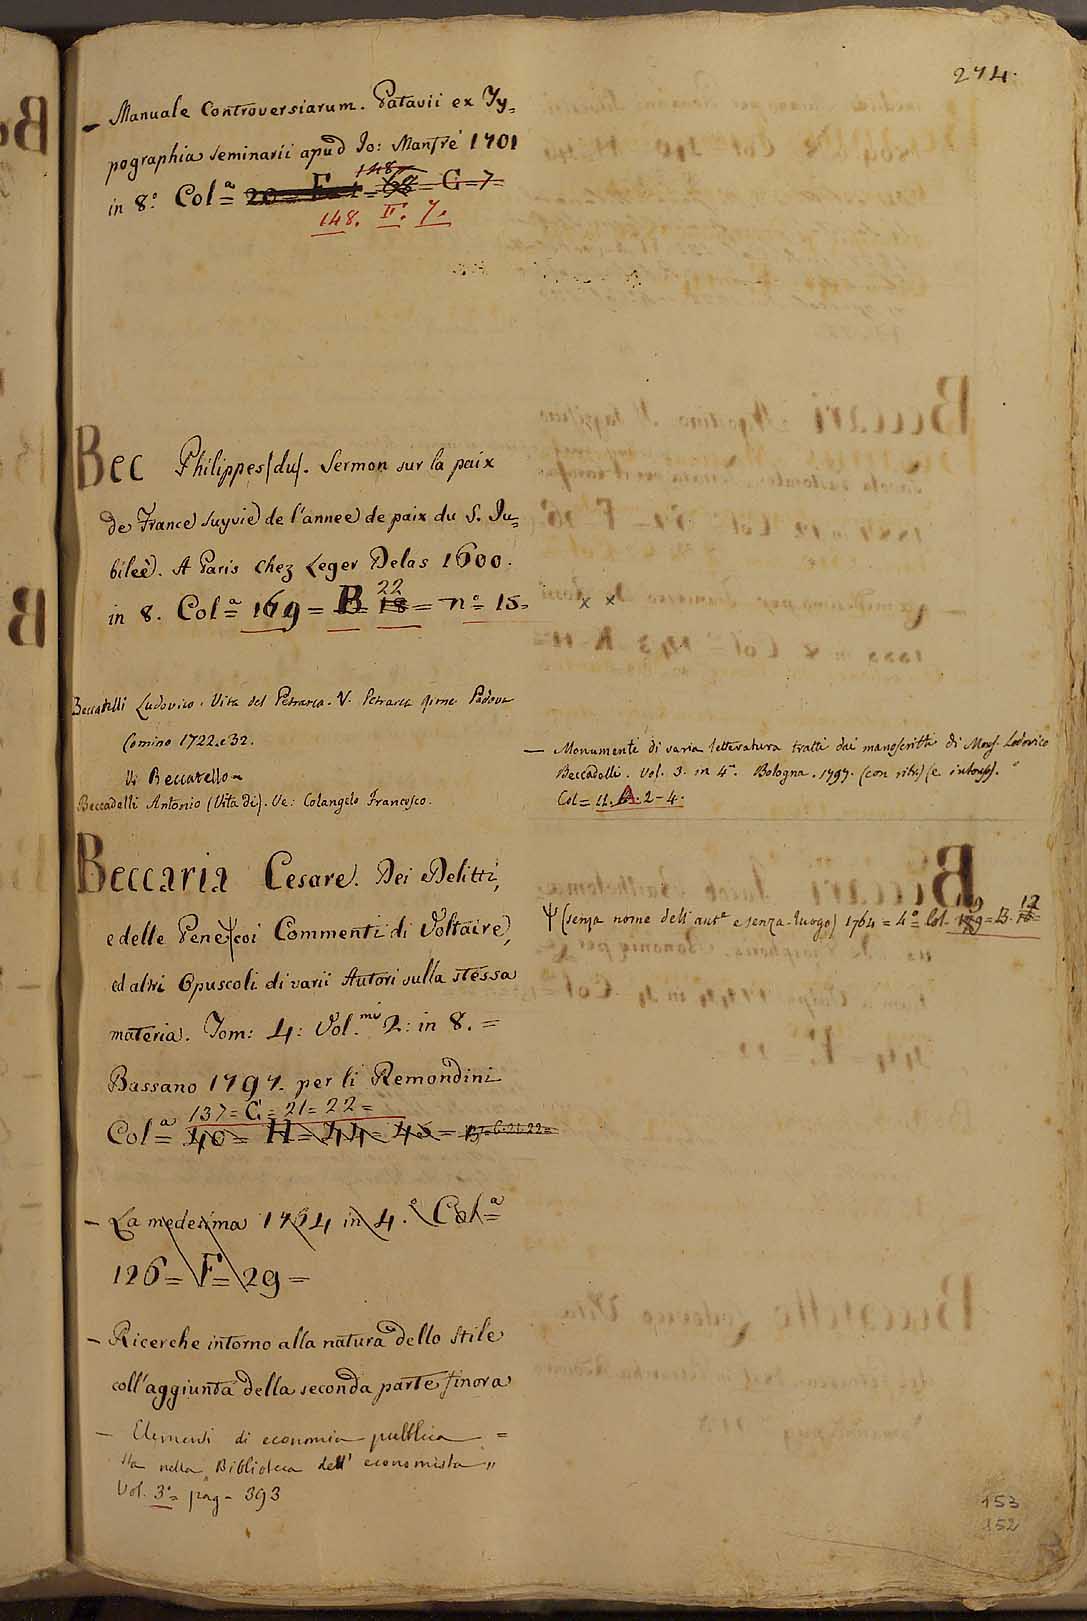 274.
– Manuale Controversiarum. Patavii ex Ty=
pographia Seminarii apud Jo: Manfrè 1701
148
in 8.º Col.ª = 20 = F = 1 = 68 = G = 7 =
148. F. 7.
Bec Philippes (du). Sermon sur la paix
de France suyvie de l'annee de paix du S. Ju=
bileè. A Paris chez Leger Delas 1600.
22
in 8. Col.ª = 169 = B = 18 = nº = 15 = x x
Beccadelli Ludovico. Vita del Petrarca. V. Petrarca Rime Padova
Comino 1722. e 32.
Vi Beccatello
Beccadelli Antonio (Vita di). Ve: Colangelo Francesco.
— Monumenti di varia letteratura tratti dai manoscritti di Mons. Lodovico
Beccadelli. Vol. 3. in 4º. Bologna. 1797. (con ritr.) (e intonsi).
Col = 11. A. 2 - 4.
Beccaria Cesare. Dei Delitti,
e delle Pene ψ coi Commenti di Voltaire,
ed altri Opuscoli di varii Autori sulla stessa
materia. Tom: 4: Vol.mi 2: in 8. =
Bassano 1797. per li Remondini
137 = G = 21 = 22 =
Col.ª = 40 = H = 44 = 45 = 137 = G. 21. 22 =
ψ (senza nome dell' autº e senza luogo) 1764 = 4º = Col. 169 = B. 18 =
12
– La medesima 1764 in 4.º Col.ª =
126 = F = 29 =
– Ricerche intorno alla natura dello stile
coll'aggiunta della seconda parte finora
– Elementi di economia pubblica =
Sta nella Biblioteca dell' economista "
Vol. 3º = pag = 393
153
152